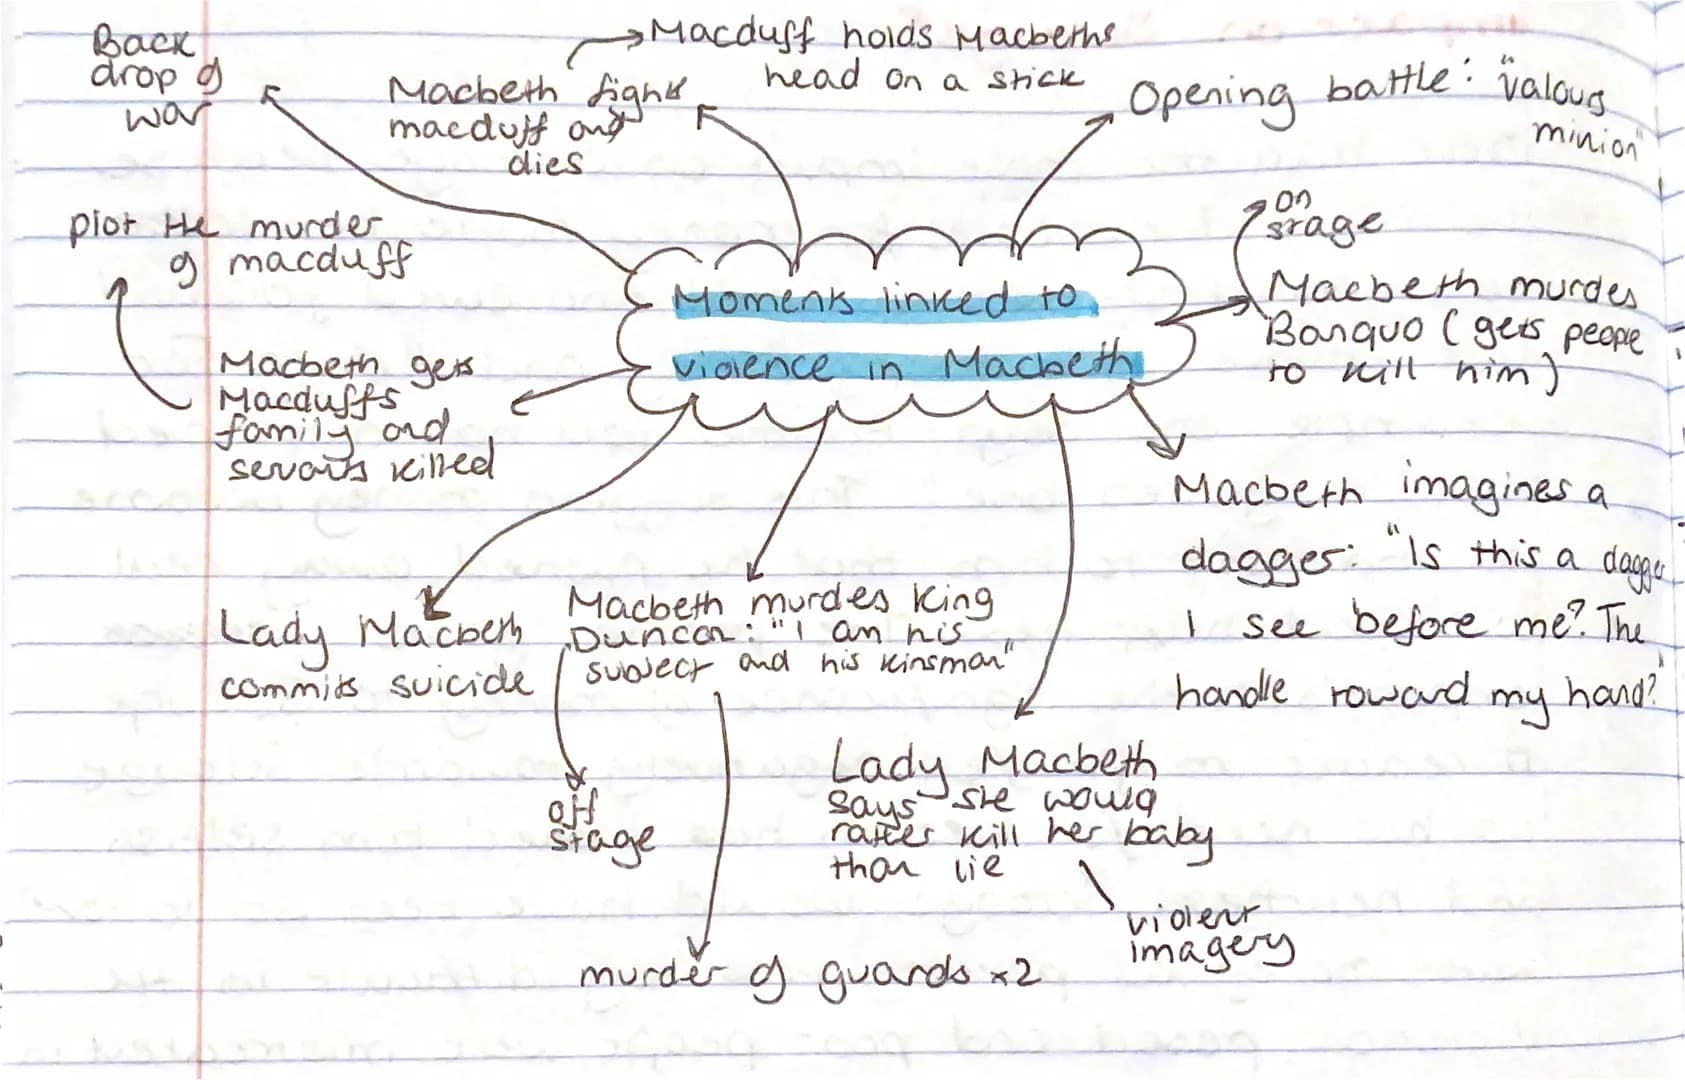 Back
drop of
war
Macbeth fights
macduff and
dies
Macduff holds Macbeths
head on a stick
Opening battle: "valours
minion"
plot the murder
of macduff
on
stage
Moments linked to
violence in Macbeth
Macbeth murdes
Banquo (gets people
to kill him)
Macbeth gets
Macduffs
family and
servants killed
Macbeth imagines a
dagger: "Is this a dagger
I see before me? The
handle toward my hand?"
Lady Macbeth
commits suicide
Macbeth murdes King
Duncan: "I am his
subject and his kinsman"
off
stage
Lady Macbeth
says she would
rather kill her baby
than lie
violent
imagery
murder of guards x2